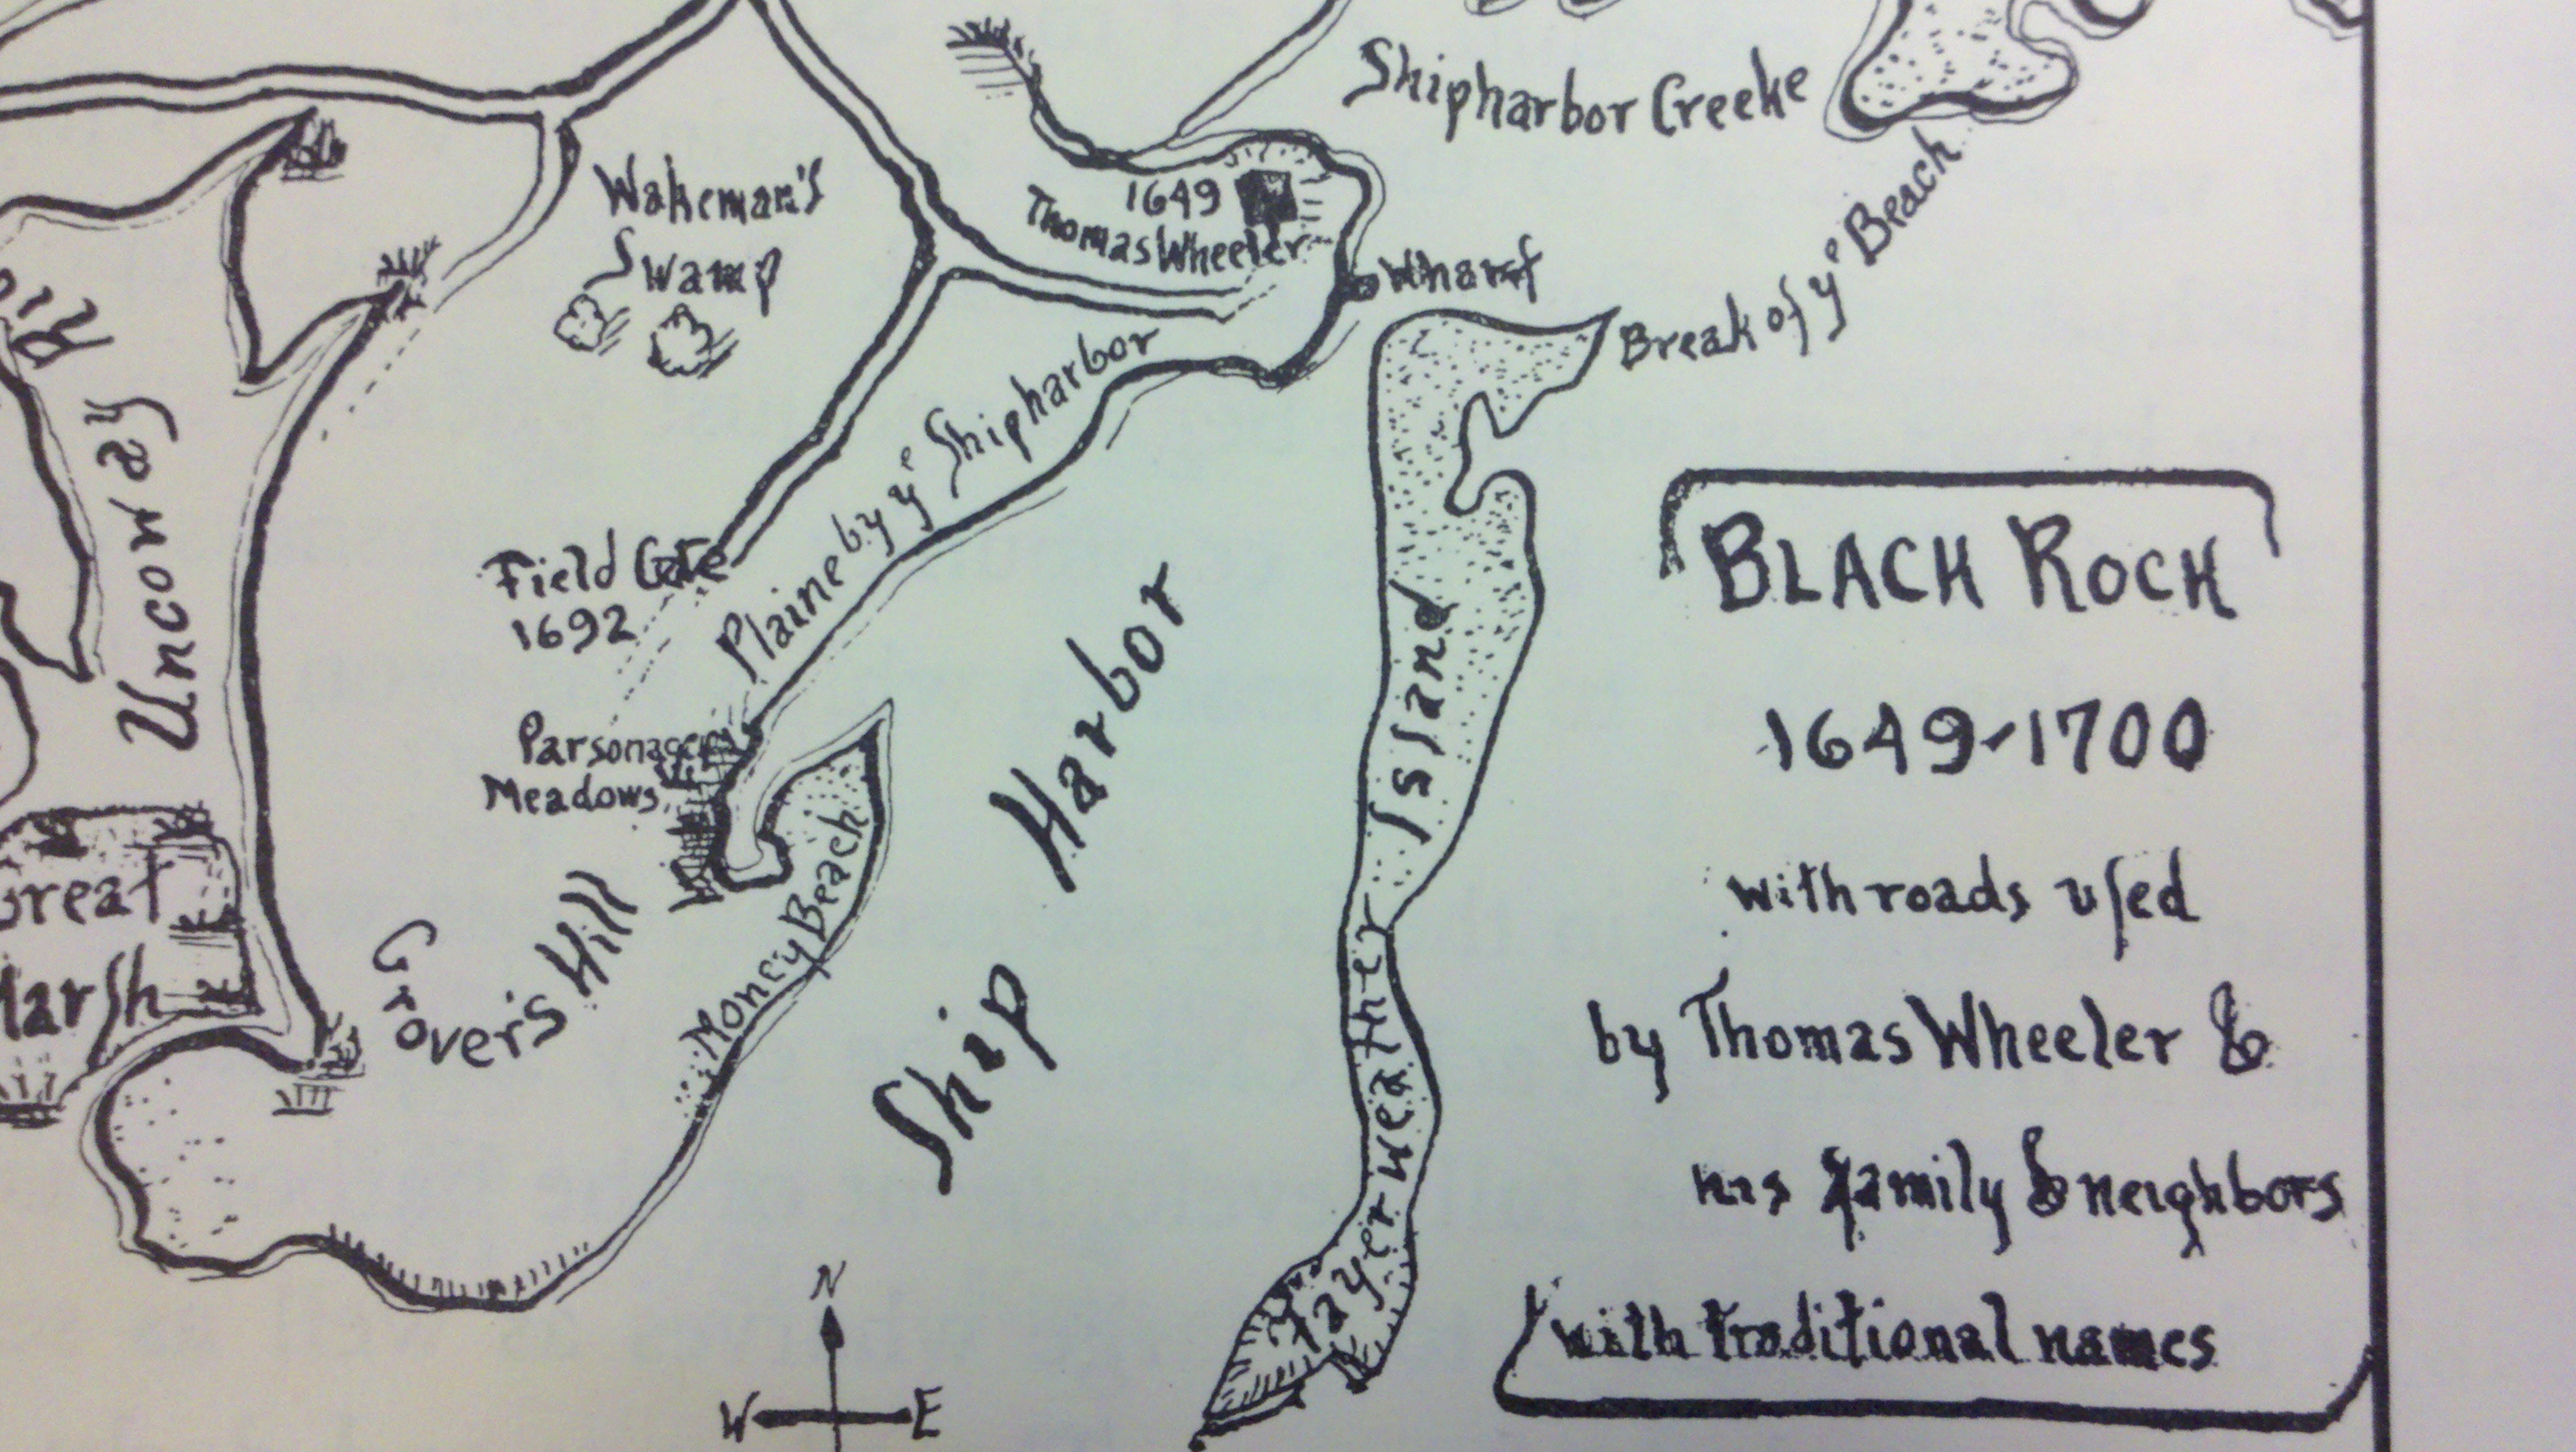 Shipharbor Creeke
Wakeman's
Swamp
1649
Thomas Wheeler
Wharf
Break of yᵉ Beach
Plaine by yᵉ Shipharbor
Uncoway
Field Gate
1692
Parsonage
Meadows
Great
Marſh
Grover's Hill
Money Beach
Ship Harbor
Fayerweather Island
N
W E
BLACK ROCK
1649-1700
with roads uſed
by Thomas Wheeler &
his family & neighbors
with traditional names